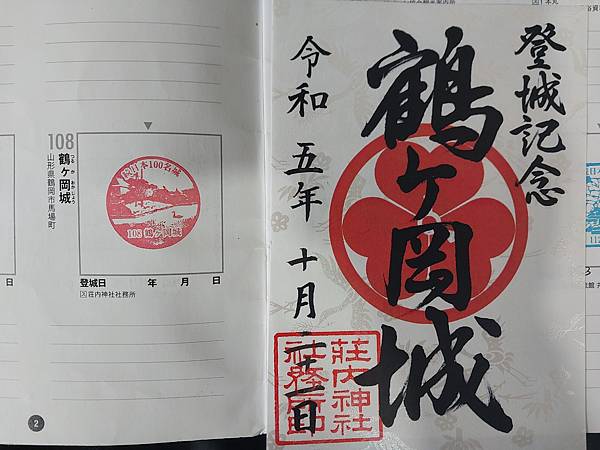 108
鶴ヶ岡城
つる が おかじょう
山形県鶴岡市馬場町
続日本100名城
108 鶴ヶ岡城
登城日 年 月 日
荘内神社社務所
日
2
登城記念
鶴ヶ岡城
令和五年 十月二十一日
荘内神社
社務所印